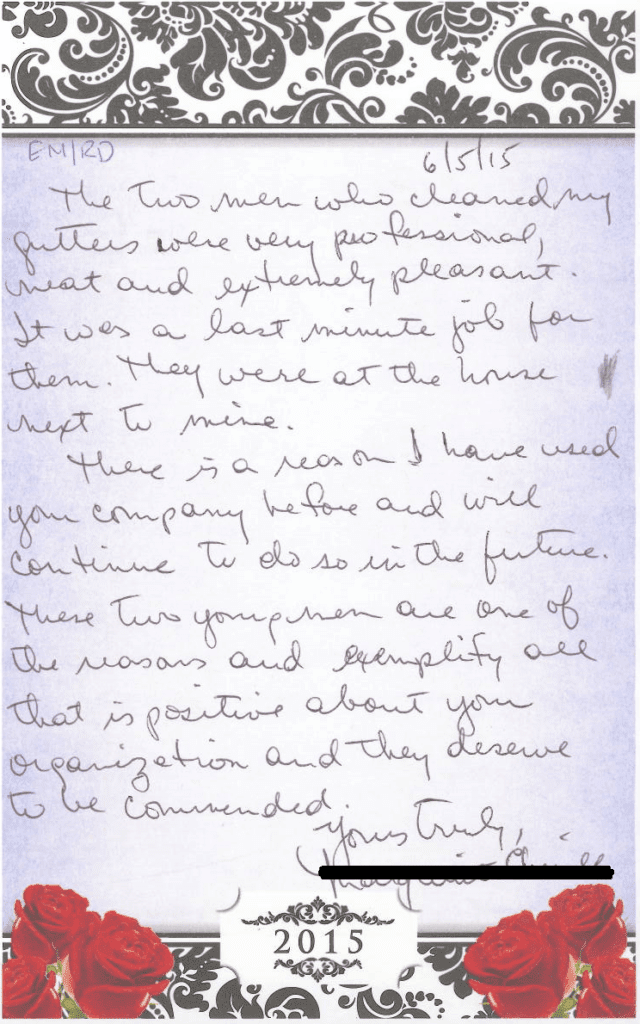 EM/RD
6/5/15
The two men who cleaned my
gutters were very professional,
neat and extremely pleasant.
It was a last minute job for
them. They were at the house
next to mine.
There is a reason I have used
your company before and will
continue to do so in the future.
These two young men are one of
the reasons and exemplify all
that is positive about your
organization and they deserve
to be commended.
Yours truly,
2015